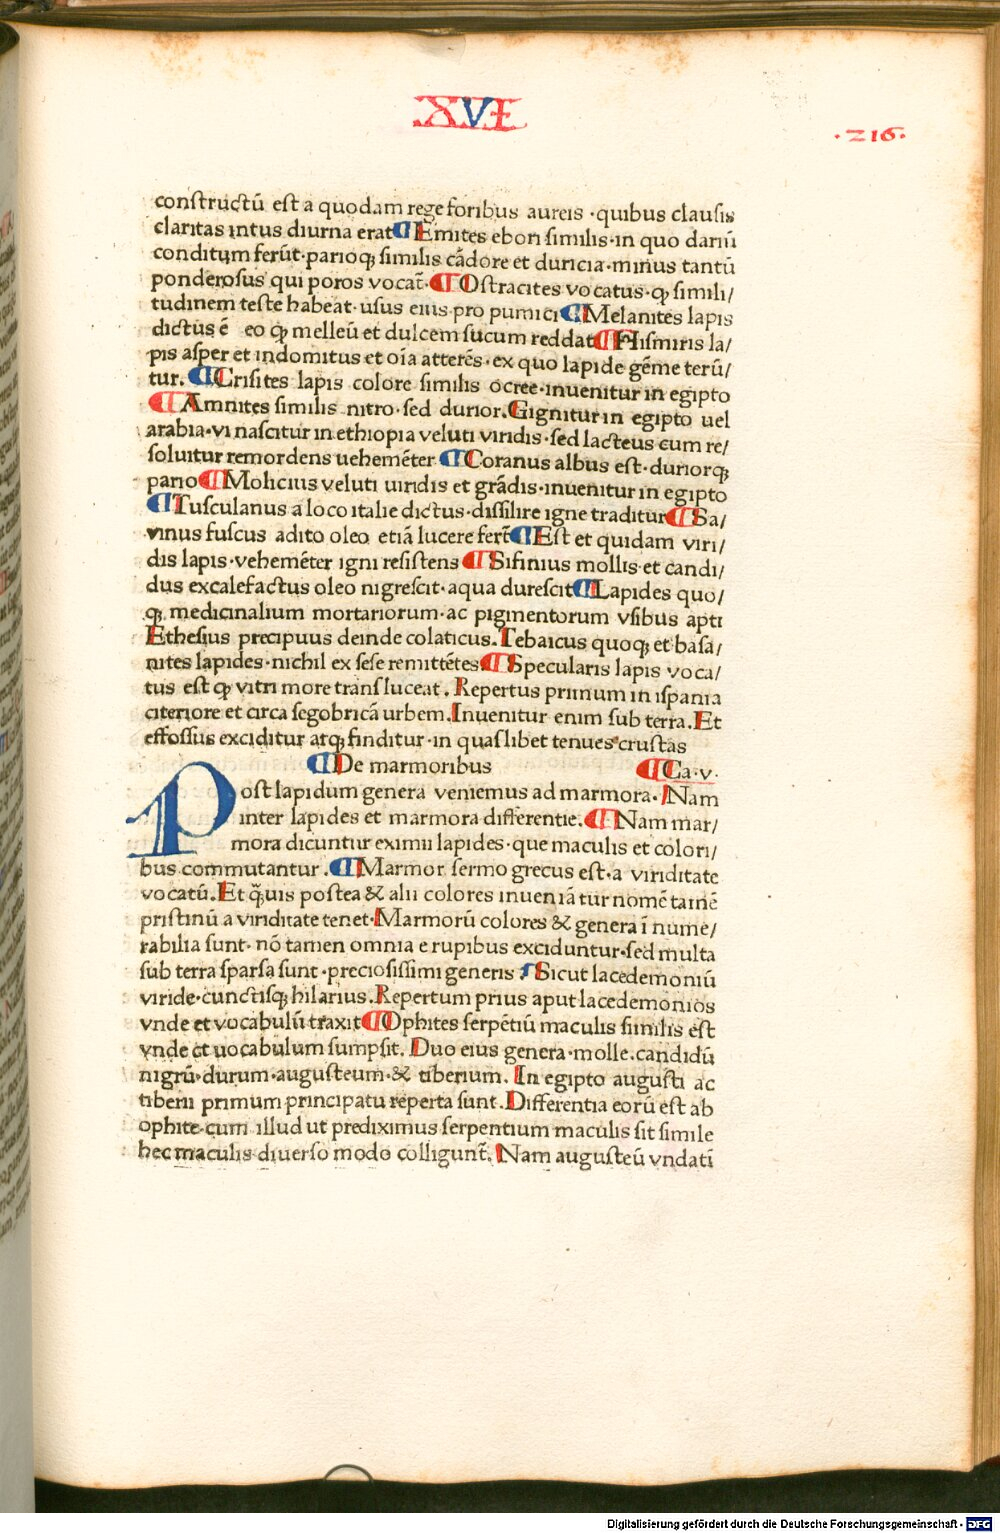 XVI
·216·
constructū est a quodam rege foribus aureis ·quibus clausis
claritas intus diurna erat ¶ Emites ebori similis·in quo dariū
conditum ferūt·parioqꝫ similis cādore et duricia·minus tantū
ponderosus qui poros vocat̄· ¶ Ostracites vocatus·ꝙ simili/
tudinem teste habeat·usus eius·pro pumici ¶ Melanites lapis
dictus ē eo ꝙ melleū et dulcem sucum reddat ¶ Hismiris la/
pis asper et indomitus et oīa atterēs·ex quo lapide gēme terū/
tur. ¶ Crisites lapis colore similis ocree·inuenitur in egipto
¶ Amnites similis nitro·sed durior. Gignitur in egipto uel
arabia·vi nascitur in ethiopia veluti viridis·sed lacteus cum re/
soluitur remordens uehemēter ¶ Coranus albus est·duriorqꝫ
pario ¶ Molicius veluti uiridis et grādis·inuenitur in egipto
¶ Tusculanus a loco italie dictus·dissilire igne traditur ¶ Sa/
vinus fuscus adito oleo etiā lucere fert̄ ¶ Est et quidam viri/
dis lapis·vehemēter igni resistens ¶ Sifinius mollis·et candi/
dus excalefactus oleo nigrescit·aqua durescit ¶ Lapides quo/
qꝫ medicinalium mortariorum·ac pigmentorum vsibus apti
Ethesius precipuus deinde colaticus. Tebaicus quoqꝫ et basa/
nites lapides·nichil ex sese remittētes ¶ Specularis lapis voca/
tus est ꝙ vitri more transluceat. Repertus primum in ispania
citeriore et circa segobricā urbem. Inuenitur enim sub terra. Et
effossus exciditur atqꝫ finditur·in quaslibet tenues crustas
¶ De marmoribus ¶ Ca·v·
Post lapidum genera veniemus ad marmora· Nam
inter lapides et marmora differentie. ¶ Nam mar/
mora dicuntur eximii lapides·que maculis et colori/
bus commutantur. ¶ Marmor sermo grecus est·a viriditate
vocatū. Et q̄uis postea & alii colores inueniātur nomē tamē
pristinū a viriditate tenet· Marmorū colores & genera ī nume/
rabilia sunt·nō tamen omnia e rupibus exciduntur·sed multa
sub terra sparsa sunt·preciosissimi generis Sicut lacedemoniū
viride·cunctisqꝫ hilarius. Repertum prius aput lacedemonios
vnde et vocabulū traxit ¶ Ophites serpētiū maculis similis est
vnde et uocabulum sumpsit. Duo eius genera·molle·candidū
nigrū·durum·augusteum·& tiberium. In egipto augusti ac
tiberii primum principatu reperta sunt. Differentia eorū est ab
ophite·cum illud ut prediximus serpentium maculis sit simile
hec maculis diuerso modo colligunt̄. Nam augusteū vndatī
Digitalisierung gefördert durch die Deutsche Forschungsgemeinschaft - DFG